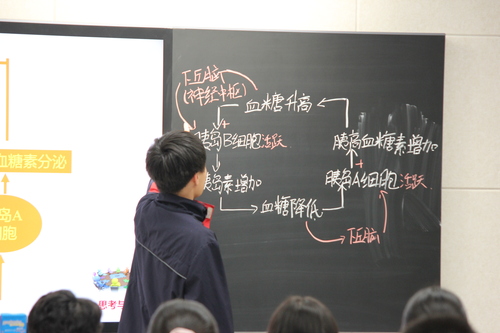 下丘脑
(神经中枢)
血糖升高
胰岛B细胞活跃
+
胰岛血糖素增加
胰岛素增加
+
胰岛A细胞活跃
血糖降低
下丘脑
血糖素分泌
岛A
细胞
思考与